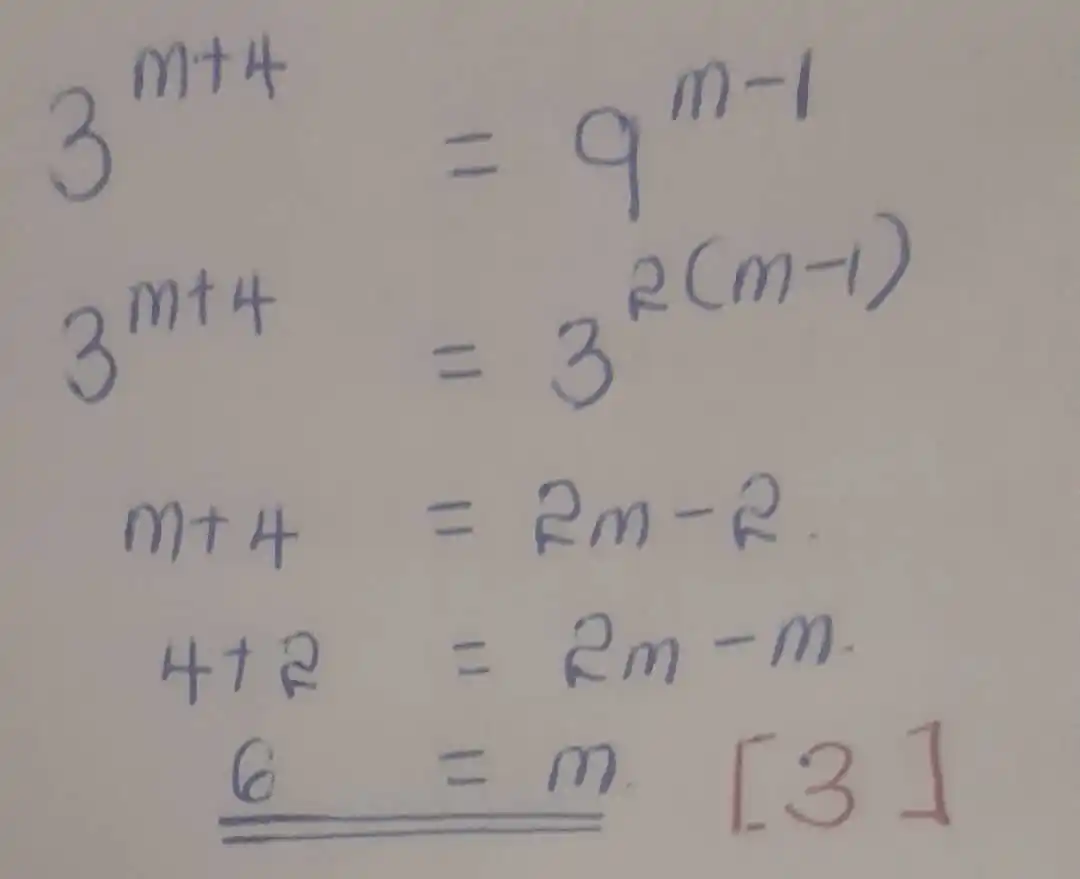 3^{m+4} = 9^{m-1}
3^{m+4} = 3^{2(m-1)}
m+4 = 2m-2.
4+2 = 2m-m.
6 = m. [3]